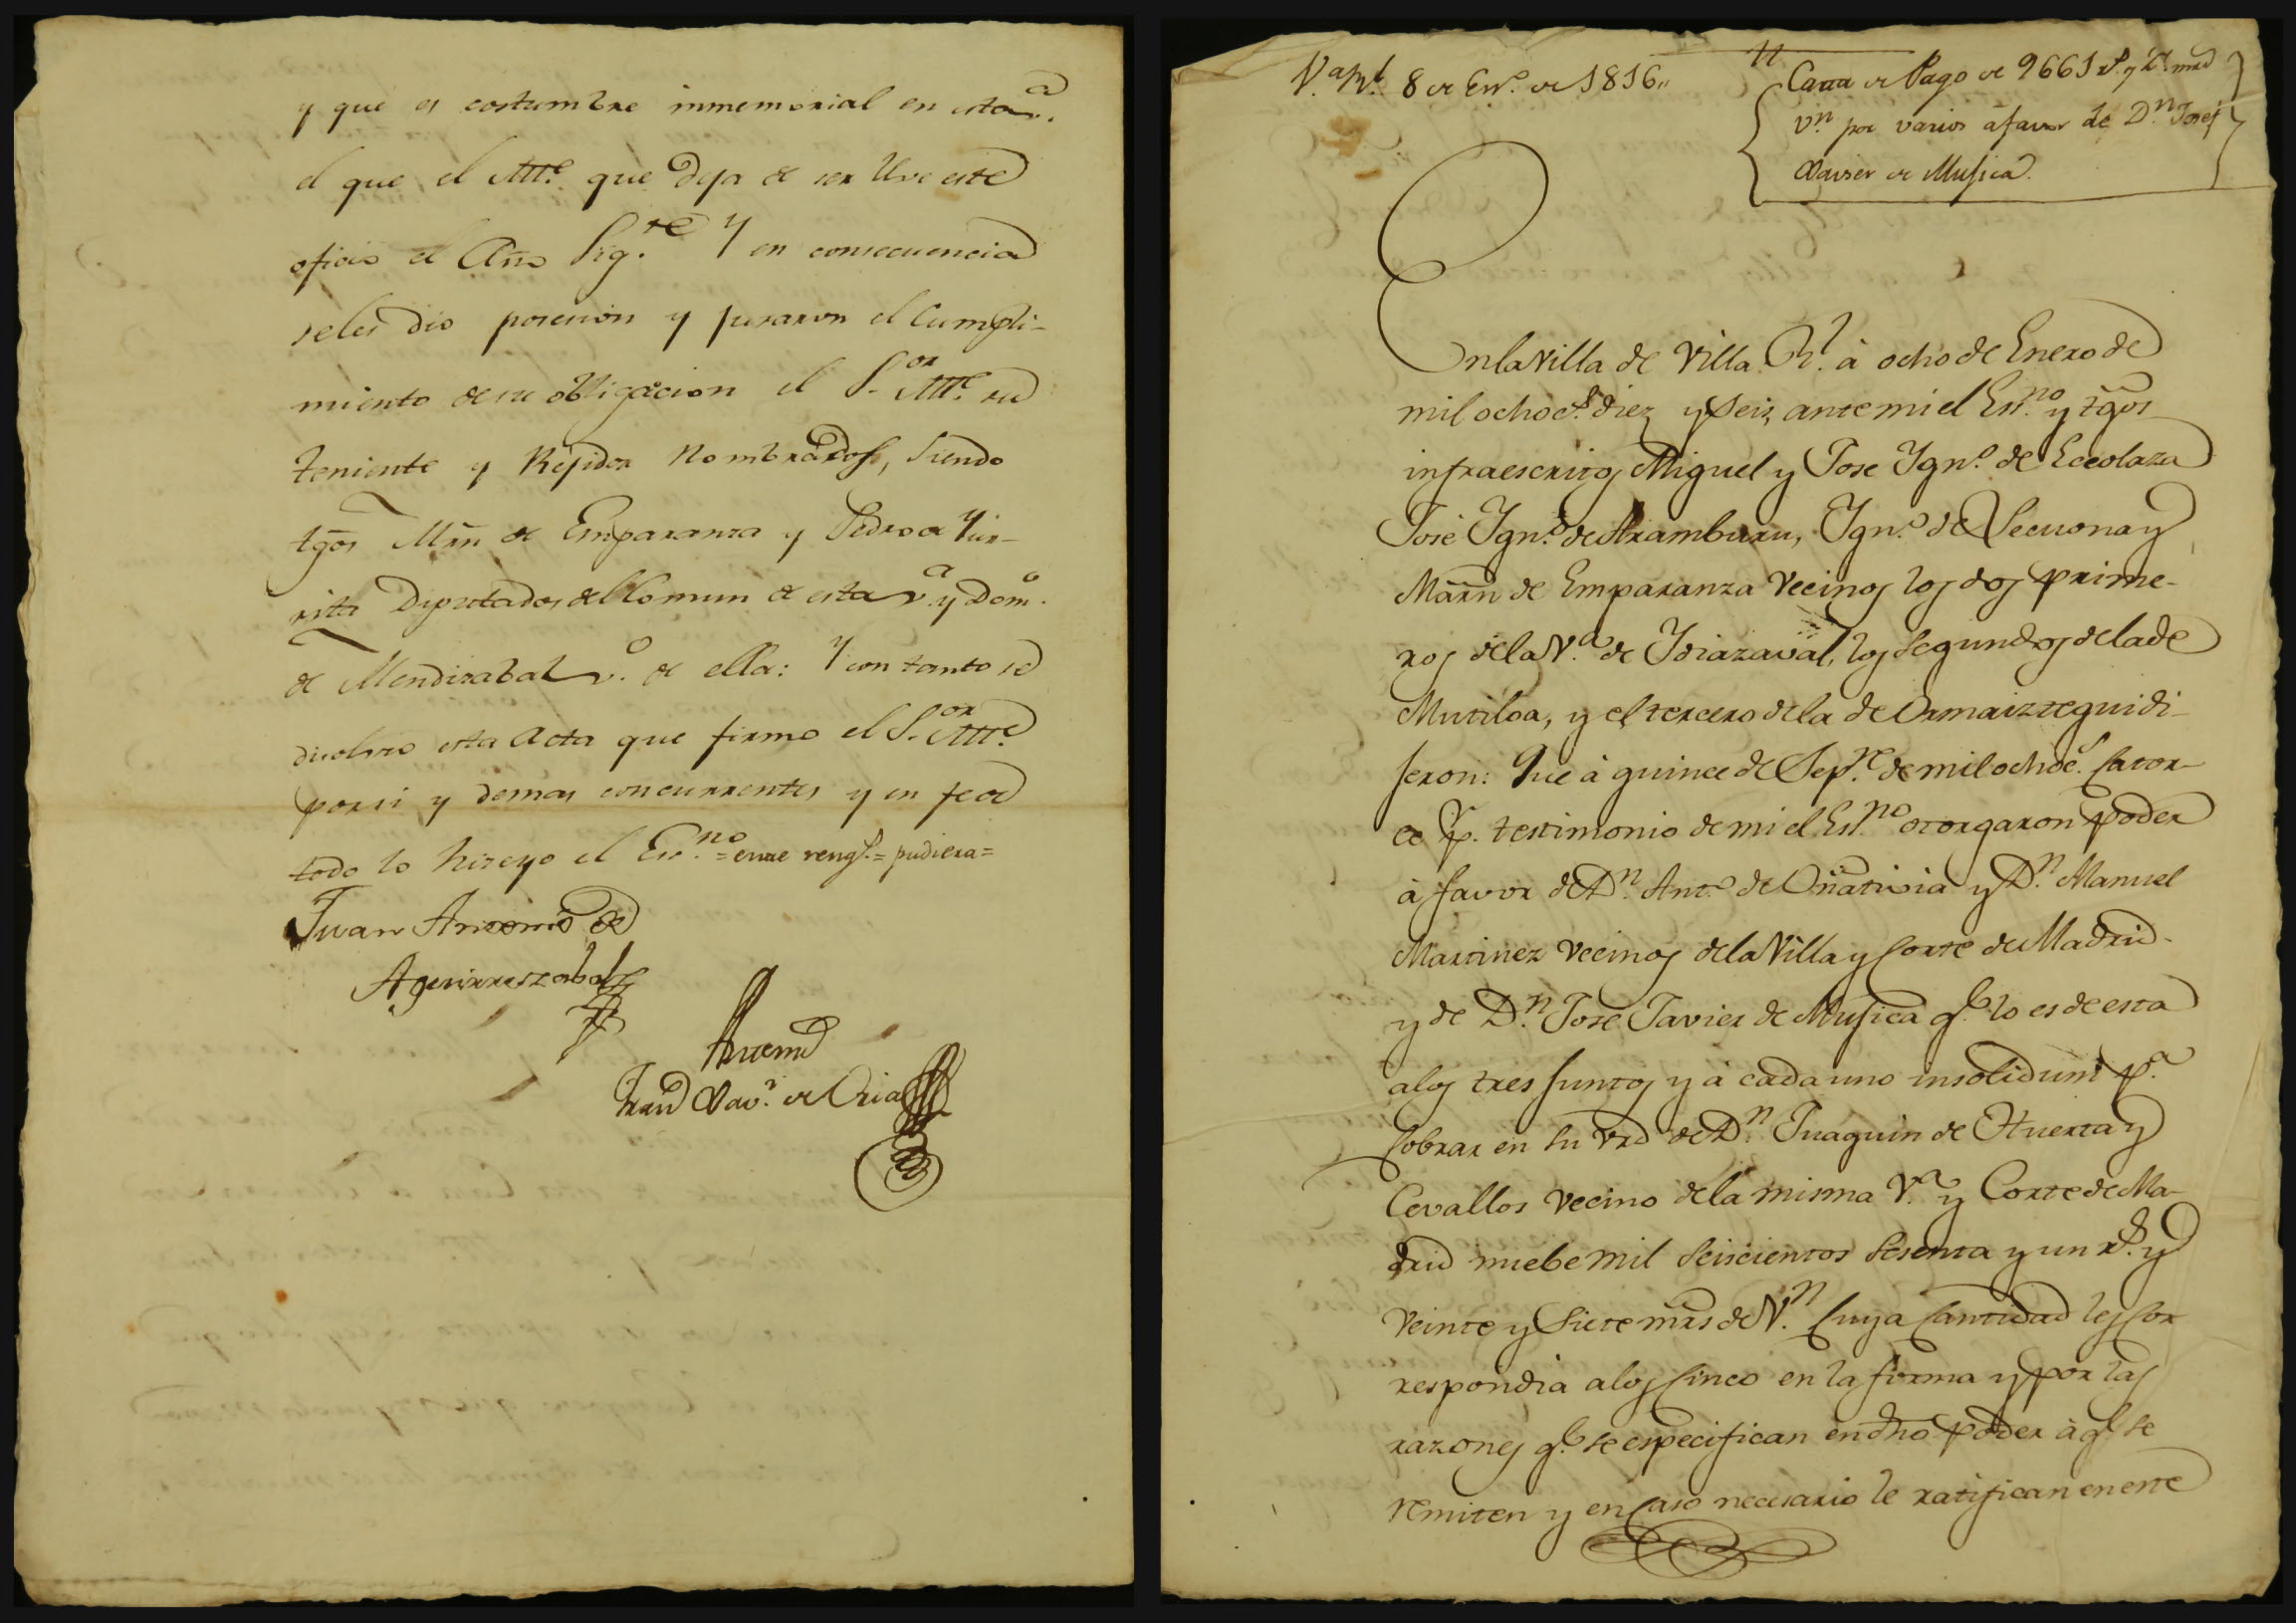 y que es costumbre inmemorial en esta v.ª
el que el Alc.e que deja de ser sirve este
oficio el Año Sig.te Y en consecuencia
seles dio posesion y juraron el Cumpli-
miento de su obligacion el S.or Alc.e su
teniente y Rejidor Nombrados, siendo
tgos Mrn de Emparanza y Pedro de Yur-
rita Diputados del Comun de esta v.ª y Dom.º
de Mendizabal v.º de ella: Y con tanto se
disolvio esta Acta que firmo el S.or Alc.e
por si y demas concurrentes y en fe de
todo lo hize yo el Ess.no = entre rengs. = pudiera =
Juan Antonio de
Aguirrezabal
Antemi
Fran.co Xav.r de Oria
V.ª R.l 8 de En.º de 1816,,
Carta de Pago de 9661 rs. y 27 mrs
v.n por varios a favor de D.n Josef
Xavier de Mujica.
En la Villa de Villa R.l à ocho de Enero de
mil ochocs. diez y seis, ante mi el Ess.no y tgos
infraescritos Miguel y Jose Ygn.º de Eceolaza
José Ygn.º de Aramburu, Ygn.º de Lecuona y
Marn de Emparanza Vecinos los dos prime-
ros de la V.ª de Idiazaval, los segundos de la de
Mutiloa, y el tercero de la de Ormaiztegui di-
jeron: Que à quince de Sep.re de mil ochocs. Cator-
ce p.r testimonio de mi el Es.no otorgaron poder
à favor de D.n Ant.º de Oñativia y D.n Manuel
Martinez Vecinos de la Villa y Corte de Madrid
y de D.n Jose Javier de Mujica q.e lo es de esta
a los tres juntos y à cada uno insolidum p.ª
Cobrar en su vrd de D.n Juaquin de Huerta y
Cevallos Vecino de la misma V.ª y Corte de Ma-
drid nuebe mil seiscientos sesenta y un rs. y
Veinte y siete mrs de V.n Cuya Cantidad les Cor
respondia a los Cinco en la forma y por las
razones q.e se especifican en dho poder à q.e se
remiten y en Caso necesario le ratifican en este